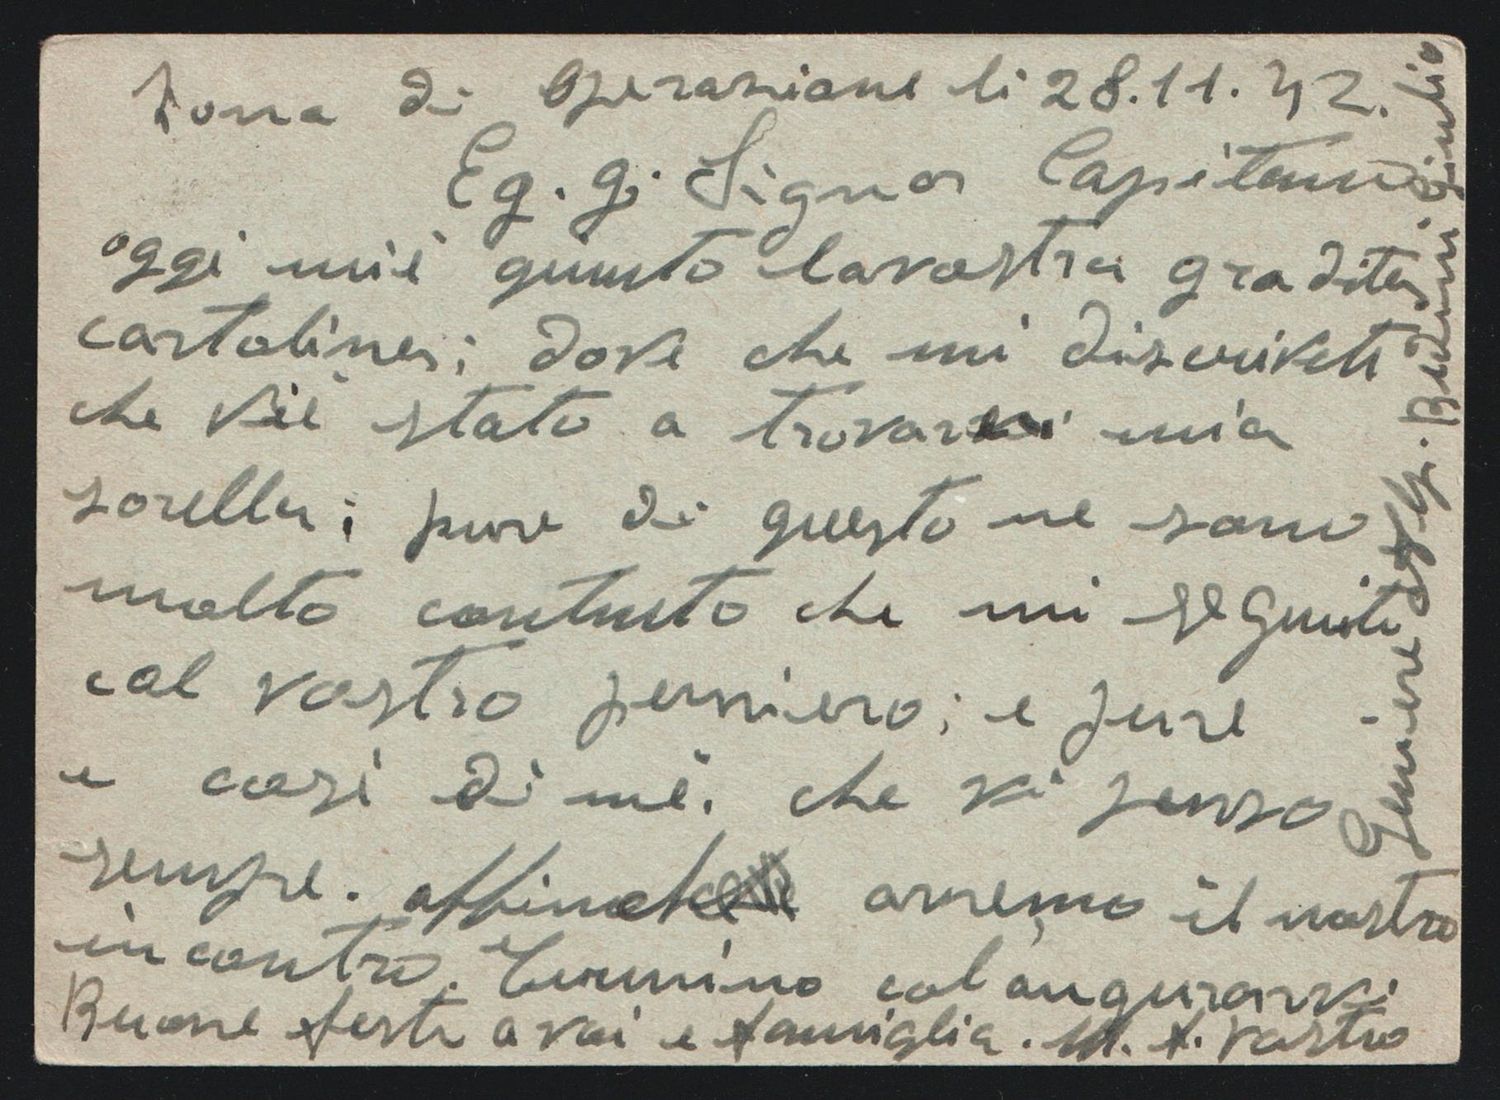 Zona di Operazione li 28.11.42.
Eg. g. Signor Capitano
oggi mi è giunto la vostra gradita
cartolina; dove che mi discrivete
che vi è stato a trovarvi mia
sorella; pure di questo ne sono
molto contento che mi seguite
col vostro pensiero; e pure
e cosi di mè. che vi penso
sempre. affinche avremo il nostro
incontro. Termino col augurarvi
Buone feste a voi e famiglia. vostro
Geniere Giulio